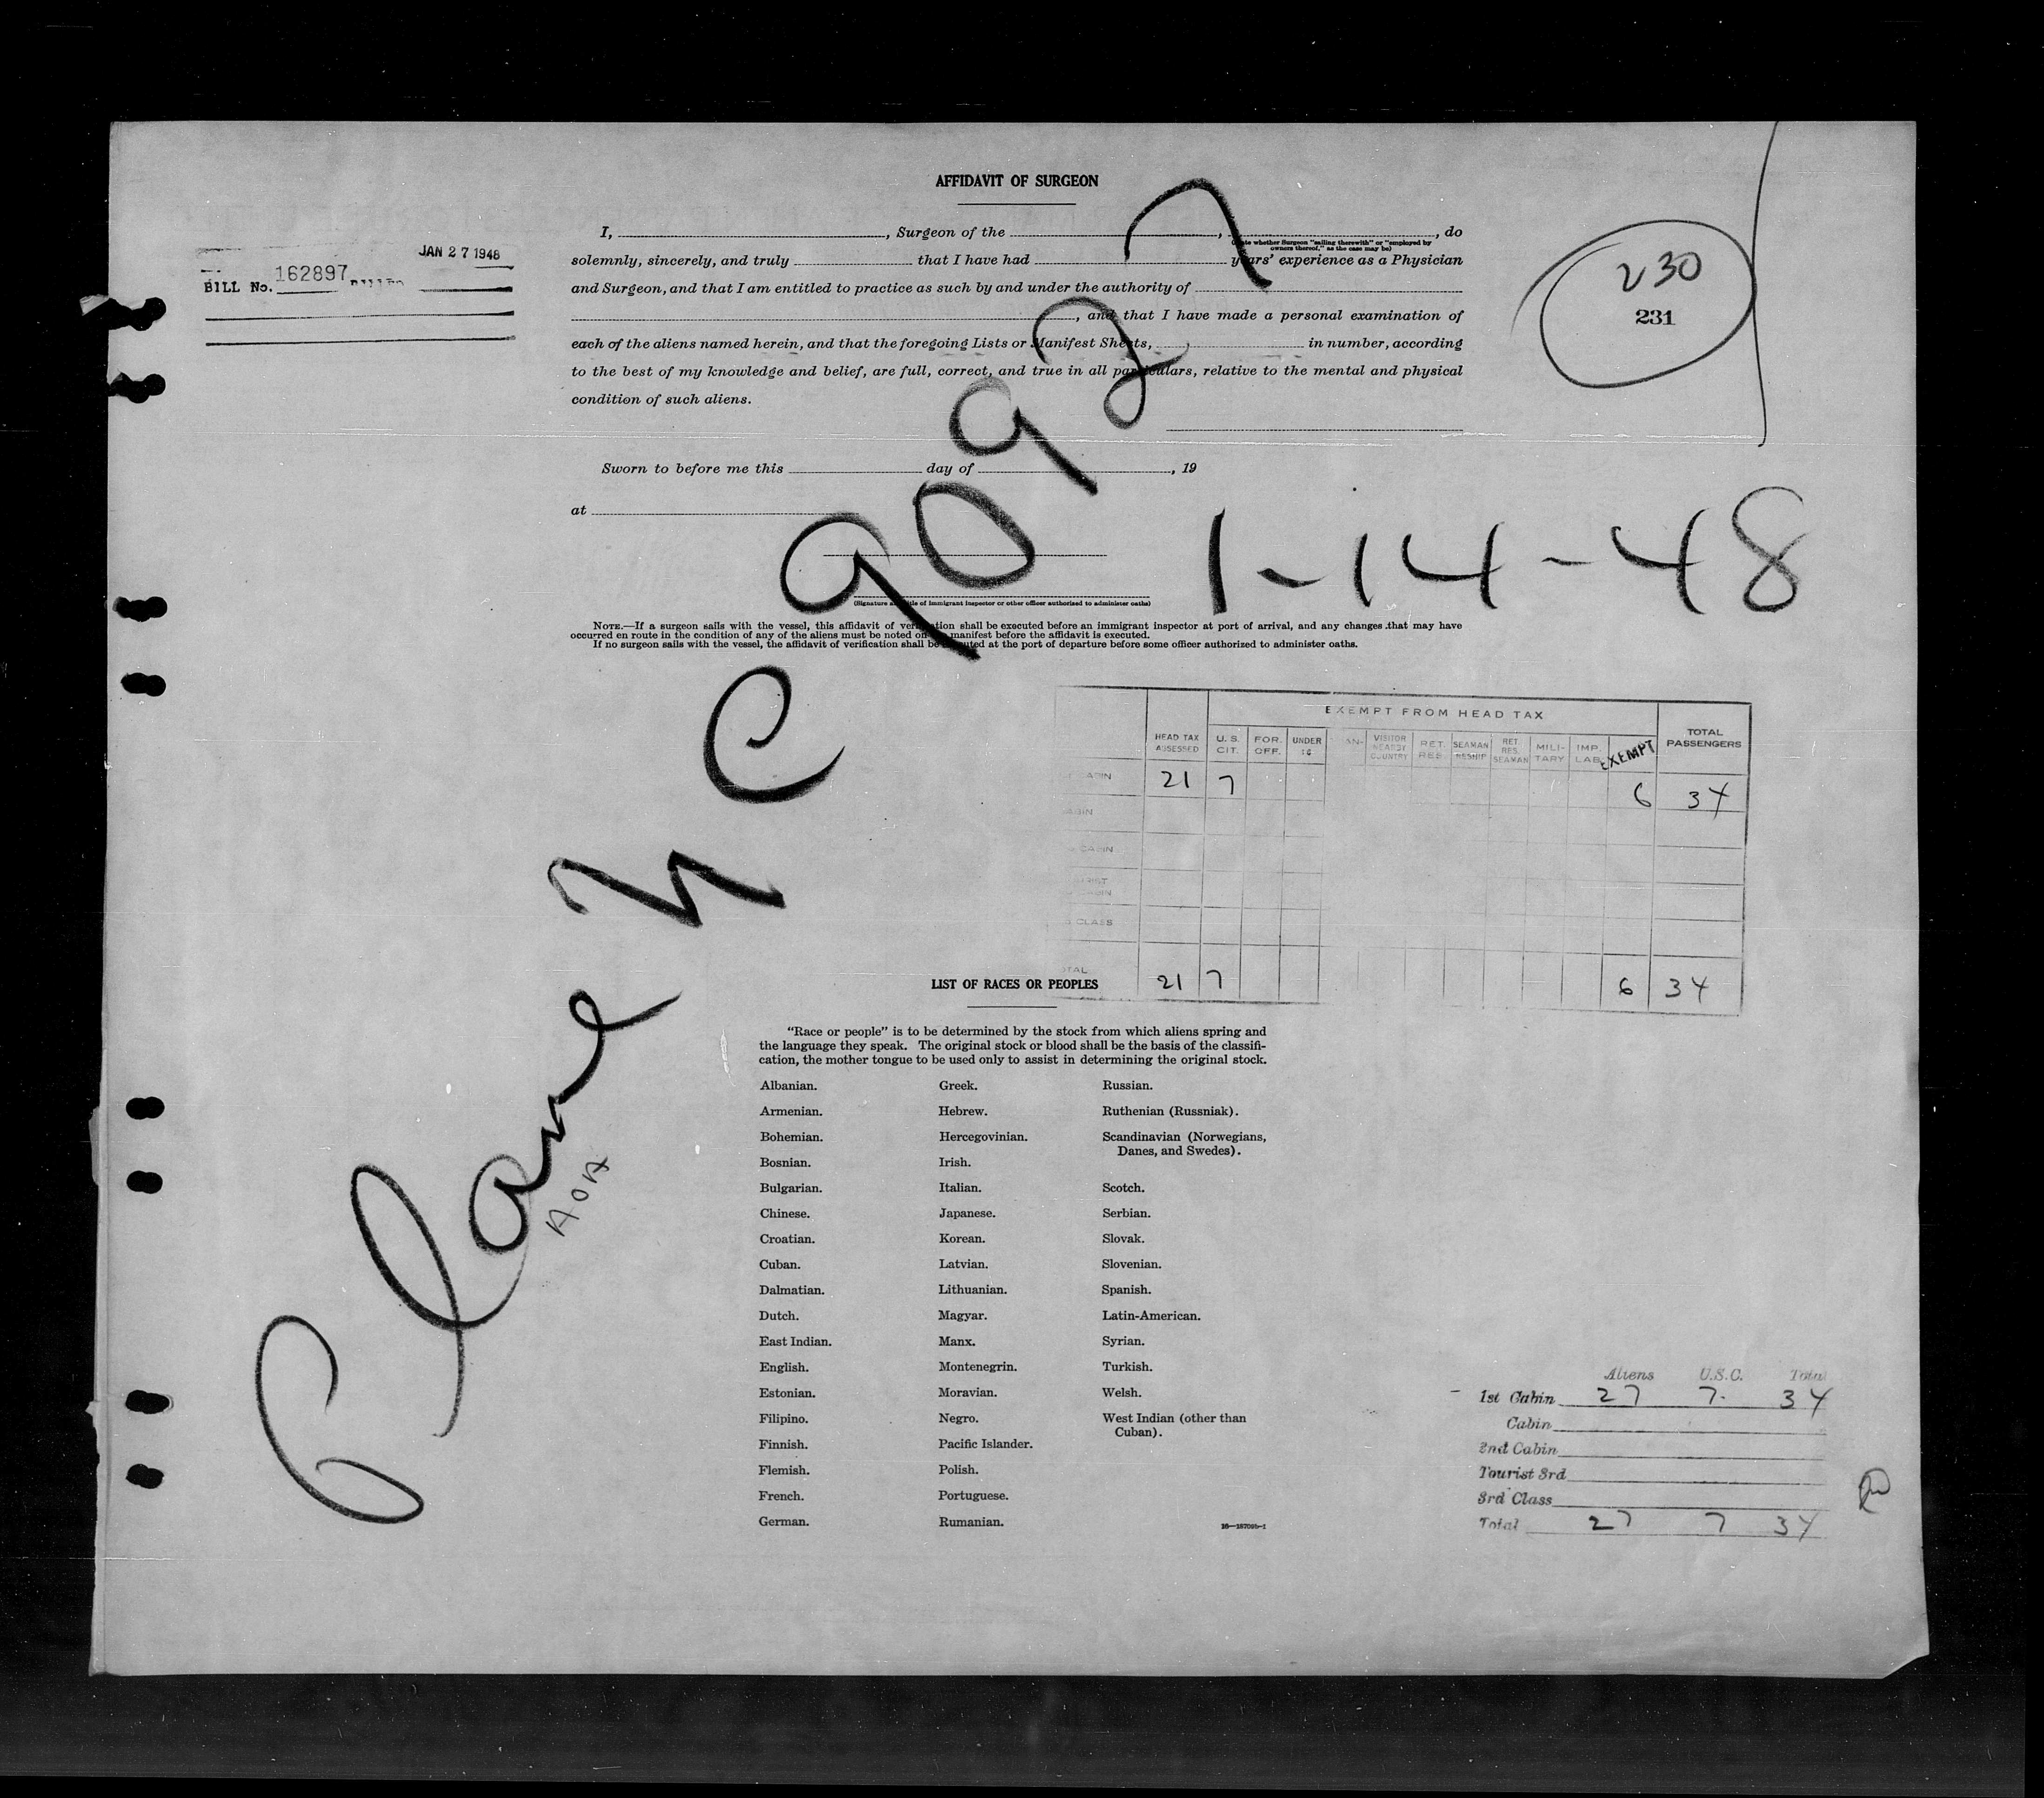 AFFIDAVIT OF SURGEON
I, , Surgeon of the , , do
(State whether Surgeon "sailing therewith" or "employed by
owners thereof," as the case may be)
solemnly, sincerely, and truly that I have had years' experience as a Physician
and Surgeon, and that I am entitled to practice as such by and under the authority of
, and that I have made a personal examination of
each of the aliens named herein, and that the foregoing Lists or Manifest Sheets, in number, according
to the best of my knowledge and belief, are full, correct, and true in all particulars, relative to the mental and physical
condition of such aliens.
JAN 27 1948
BILL No. 162897
230
231
Sworn to before me this day of , 19
at
1-14-48
(Signature and title of Immigrant Inspector or other officer authorized to administer oaths)
NOTE.—If a surgeon sails with the vessel, this affidavit of verification shall be executed before an immigrant inspector at port of arrival, and any changes that may have
occurred en route in the condition of any of the aliens must be noted on the manifest before the affidavit is executed.
If no surgeon sails with the vessel, the affidavit of verification shall be executed at the port of departure before some officer authorized to administer oaths.
Plane NC 90927
AOA
EXEMPT FROM HEAD TAX
HEAD TAX ASSESSED U. S. CIT. FOR. OFF. UNDER 16 VISITOR NEARBY COUNTRY RET. RES. SEAMAN RESHIP RET. RES. SEAMAN MILI-TARY IMP. LAB. EXEMPT TOTAL PASSENGERS
21 7 6 34
CABIN
CABIN
CLASS
TOTAL 21 7 6 34
LIST OF RACES OR PEOPLES
"Race or people" is to be determined by the stock from which aliens spring and
the language they speak. The original stock or blood shall be the basis of the classifi-
cation, the mother tongue to be used only to assist in determining the original stock.
Albanian.
Armenian.
Bohemian.
Bosnian.
Bulgarian.
Chinese.
Croatian.
Cuban.
Dalmatian.
Dutch.
East Indian.
English.
Estonian.
Filipino.
Finnish.
Flemish.
French.
German.
Greek.
Hebrew.
Hercegovinian.
Irish.
Italian.
Japanese.
Korean.
Latvian.
Lithuanian.
Magyar.
Manx.
Montenegrin.
Moravian.
Negro.
Pacific Islander.
Polish.
Portuguese.
Rumanian.
Russian.
Ruthenian (Russniak).
Scandinavian (Norwegians,
Danes, and Swedes).
Scotch.
Serbian.
Slovak.
Slovenian.
Spanish.
Latin-American.
Syrian.
Turkish.
Welsh.
West Indian (other than
Cuban).
Aliens U.S.C. Total
1st Cabin 27 7 34
Cabin
2nd Cabin
Tourist 3rd
3rd Class
Total 27 7 34